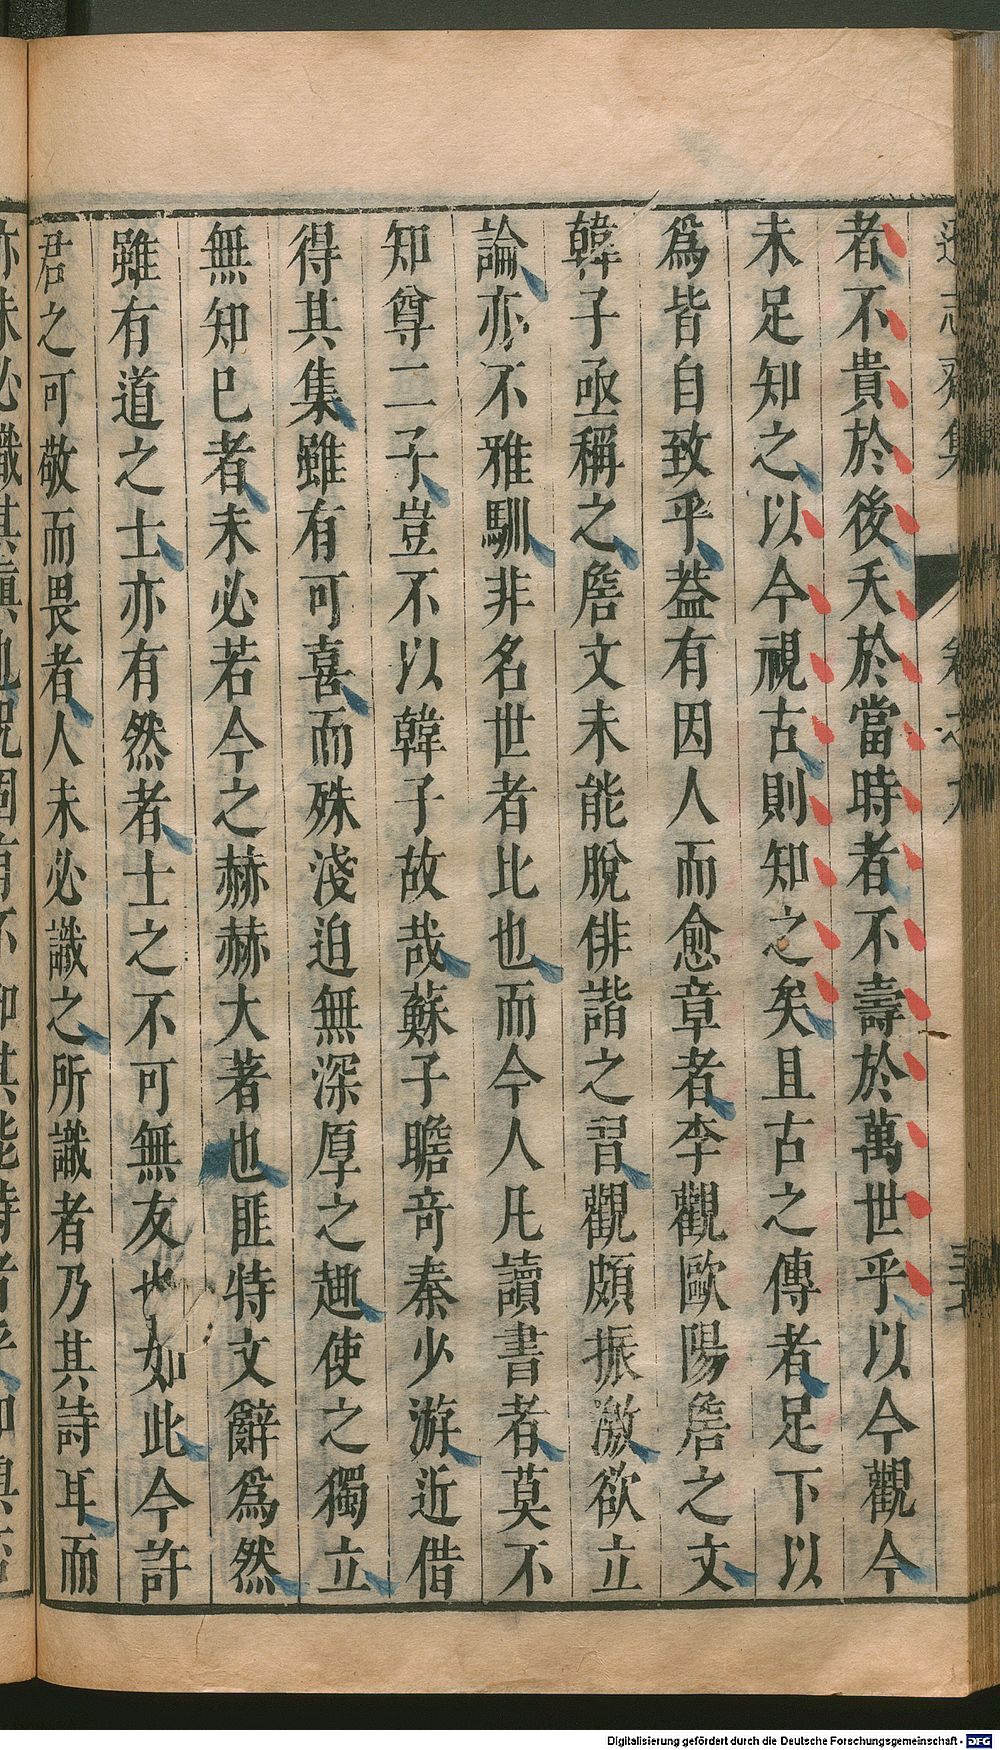 者不貴於後夭於當時者不壽於萬世乎以今觀今
未足知之以今視古則知之矣且古之傳者足下以
爲皆自致乎葢有因人而愈章者李觀歐陽詹之文
韓子亟稱之詹文未能脫俳諧之習觀頗振激欲立
論亦不雅馴非名世者比也而今人凡讀書者莫不
知尊二子豈不以韓子故哉蘇子瞻竒秦少游近借
得其集雖有可喜而殊淺迫無深厚之趣使之獨立
無知巳者未必若今之赫赫大著也匪特文辭爲然
雖有道之士亦有然者士之不可無友也如此今許
君之可敬而畏者人未必識之所識者乃其詩耳而
Digitalisierung gefördert durch die Deutsche Forschungsgemeinschaft - DFG